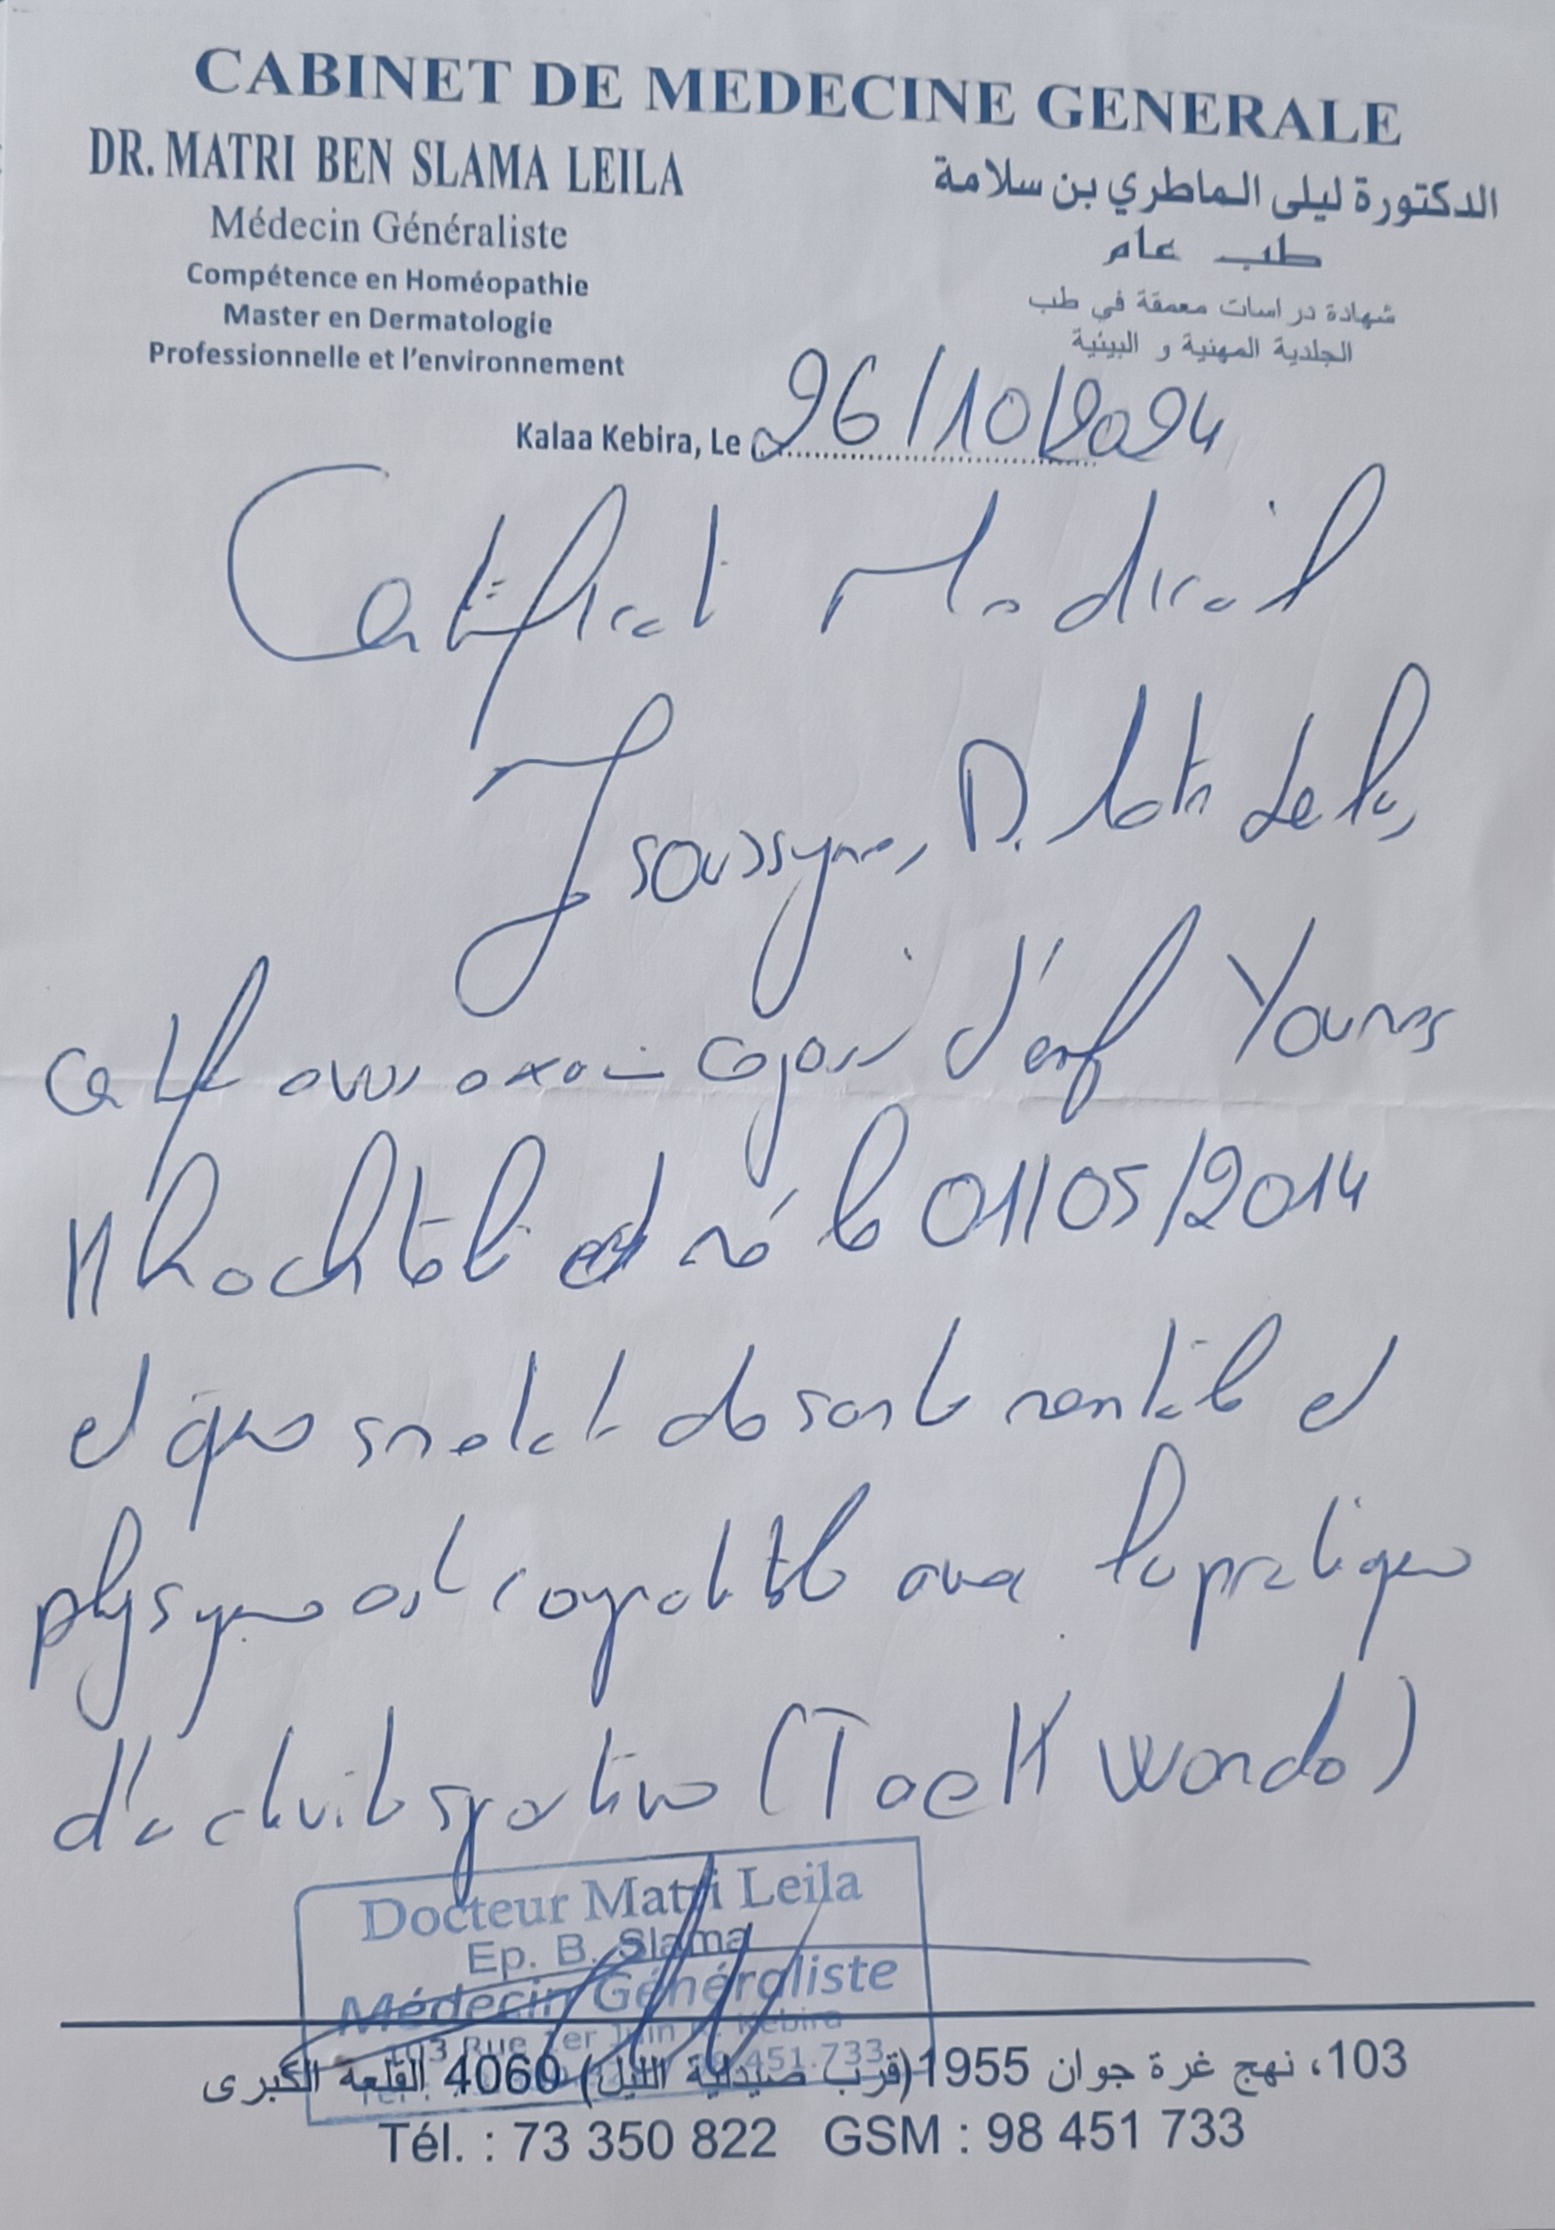 CABINET DE MEDECINE GENERALE
DR. MATRI BEN SLAMA LEILA
Médecin Généraliste
Compétence en Homéopathie
Master en Dermatologie
Professionnelle et l'environnement
الدكتورة ليلى الماطري بن سلامة
طب عام
شهادة دراسات معمقة في طب
الجلدية المهنية و البيئية
Kalaa Kebira, Le 26/10/2024
Certificat Medical
Je soussigné, Dr Matri Leila,
certifie avoir examiné ce jour l'enf Younes
Mhachtali et né le 01/05/2014
et que son etat de santé mentale et
physique est compatible avec la pratique
d'activité sportive (TaeKwondo)
Docteur Matri Leila
Ep. B. Slama
Médecin Généraliste
103 Rue 1er Juin K. Kebira
103، نهج غرة جوان 1955(قرب صيدلية الليل) 4060 القلعة الكبرى
Tél. : 73 350 822 GSM : 98 451 733